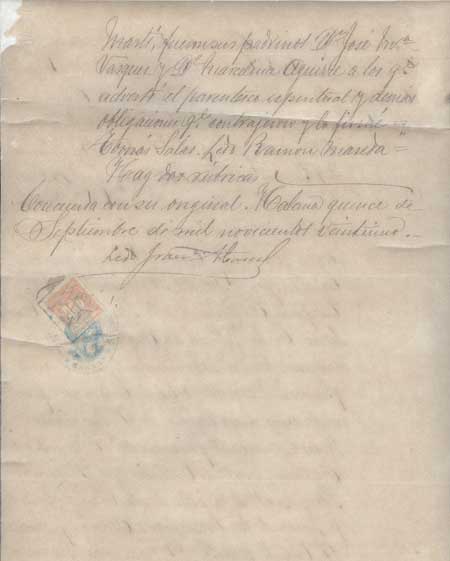 Martí, fueron sus padrinos Dn José Ma
Vazquez y Da Marcelina Aguirre a los qs
advertí el parentesco espiritual y demas
obligaciones qe contrajeron y lo firmé =
Tomás Salas. Ledo Ramon
Hay dos rúbricas.
Concuerda con su original. Habana quince de
Septiembre de mil novecientos veintiuno.
Ledo Fran